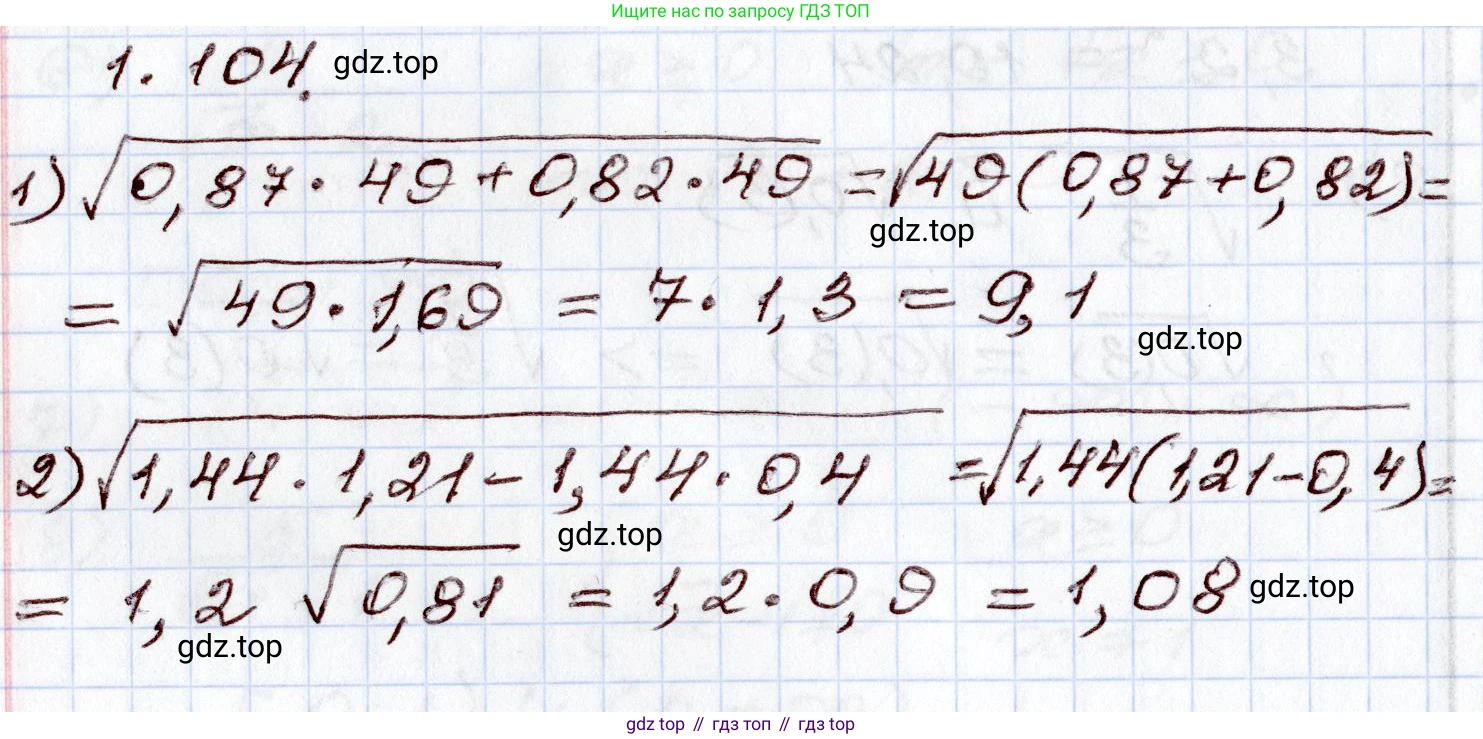 Ищите нас по запросу ГДЗ ТОП
1.104. gdz.top
1) √0,87·49+0,82·49 = √49(0,87+0,82) =
gdz.top
= √49·1,69 = 7·1,3 = 9,1
gdz.top
2) √1,44·1,21-1,44·0,4 = √1,44(1,21-0,4) =
gdz.top
= 1,2 √0,81 = 1,2·0,9 = 1,08 gdz.top
gdz.top
gdz top // гдз топ // гдз top